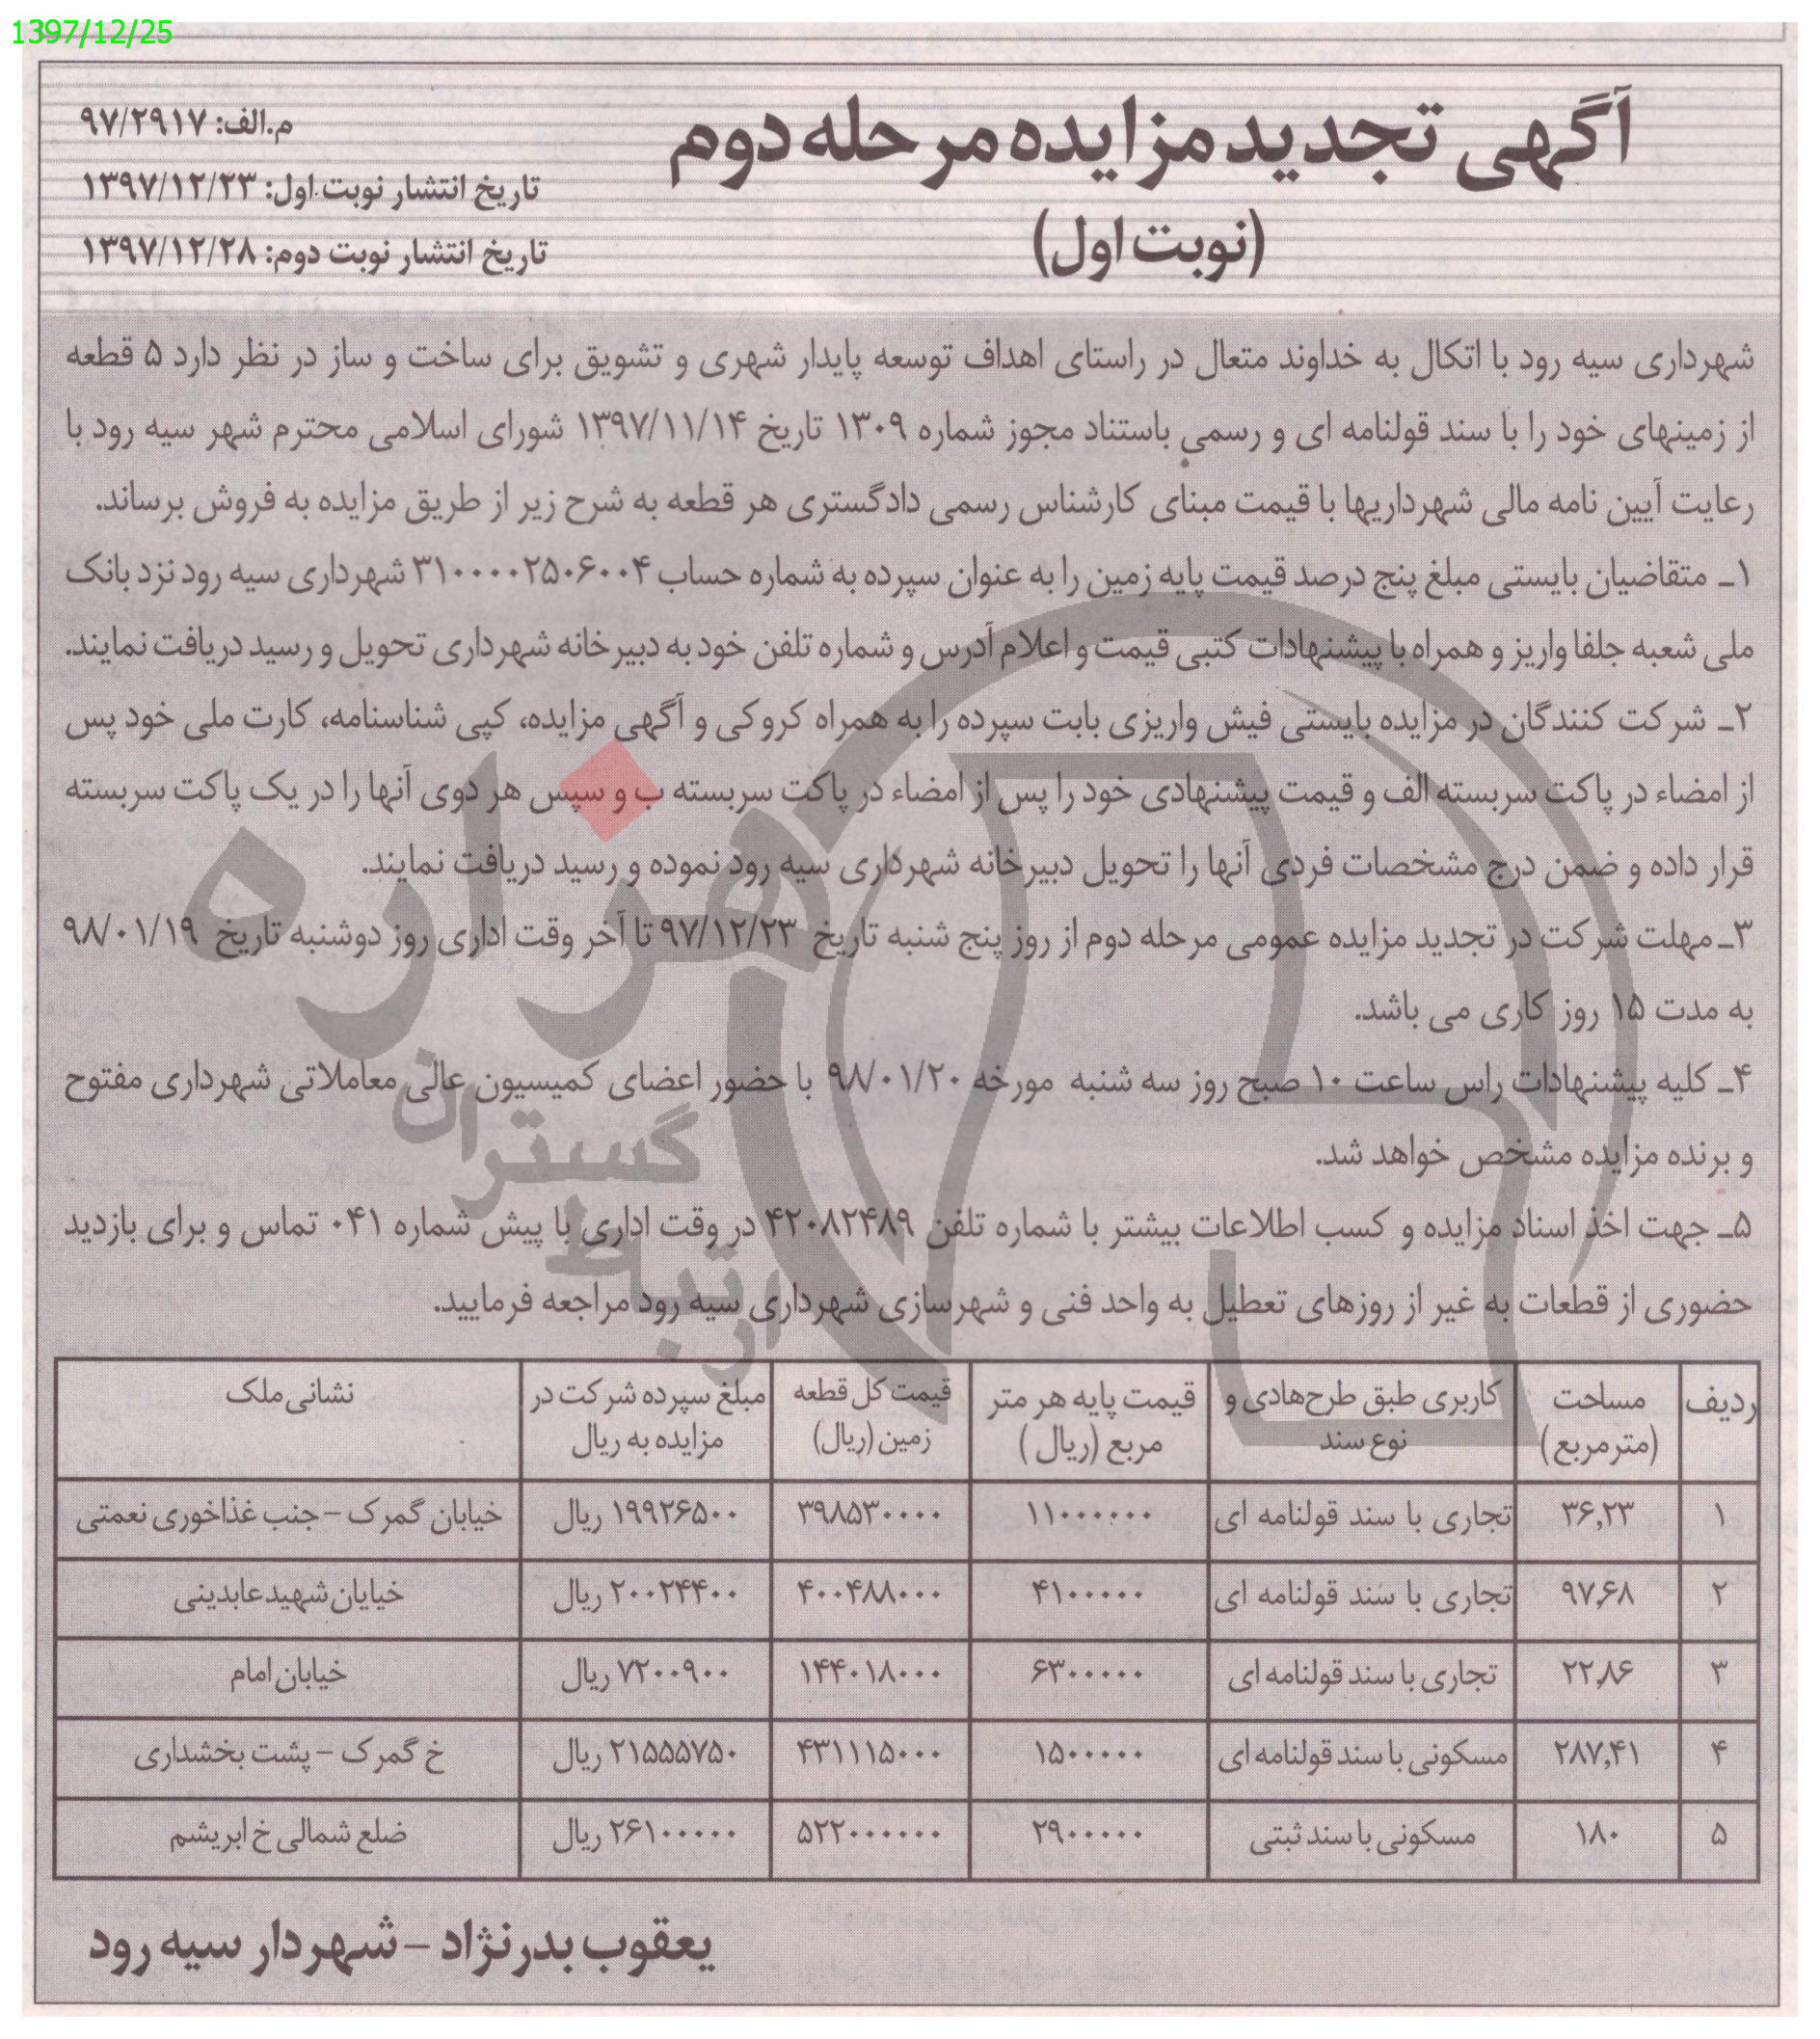 1397/12/25
آگهی تجدید مزایده مرحله دوم
(نوبت اول)
م.الف: ۹۷/۲۹۱۷
تاریخ انتشار نوبت اول: ۱۳۹۷/۱۲/۲۳
تاریخ انتشار نوبت دوم: ۱۳۹۷/۱۲/۲۸
شهرداری سیه رود با اتکال به خداوند متعال در راستای اهداف توسعه پایدار شهری و تشویق برای ساخت و ساز در نظر دارد ۵ قطعه
از زمینهای خود را با سند قولنامه ای و رسمی باستناد مجوز شماره ۱۳۰۹ تاریخ ۱۳۹۷/۱۱/۱۴ شورای اسلامی محترم شهر سیه رود با
رعایت آیین نامه مالی شهرداریها با قیمت مبنای کارشناس رسمی دادگستری هر قطعه به شرح زیر از طریق مزایده به فروش برساند.
۱ـ متقاضیان بایستی مبلغ پنج درصد قیمت پایه زمین را به عنوان سپرده به شماره حساب ۳۱۰۰۰۰۲۵۰۶۰۰۴ شهرداری سیه رود نزد بانک
ملی شعبه جلفا واریز و همراه با پیشنهادات کتبی قیمت و اعلام آدرس و شماره تلفن خود به دبیرخانه شهرداری تحویل و رسید دریافت نمایند.
۲ـ شرکت کنندگان در مزایده بایستی فیش واریزی بابت سپرده را به همراه کروکی و آگهی مزایده، کپی شناسنامه، کارت ملی خود پس
از امضاء در پاکت سربسته الف و قیمت پیشنهادی خود را پس از امضاء در پاکت سربسته ب و سپس هر دوی آنها را در یک پاکت سربسته
قرار داده و ضمن درج مشخصات فردی آنها را تحویل دبیرخانه شهرداری سیه رود نموده و رسید دریافت نمایند.
۳ـ مهلت شرکت در تجدید مزایده عمومی مرحله دوم از روز پنج شنبه تاریخ ۹۷/۱۲/۲۳ تا آخر وقت اداری روز دوشنبه تاریخ ۹۸/۰۱/۱۹
به مدت ۱۵ روز کاری می باشد.
۴ـ کلیه پیشنهادات راس ساعت ۱۰ صبح روز سه شنبه مورخه ۹۸/۰۱/۲۰ با حضور اعضای کمیسیون عالی معاملاتی شهرداری مفتوح
و برنده مزایده مشخص خواهد شد.
۵ـ جهت اخذ اسناد مزایده و کسب اطلاعات بیشتر با شماره تلفن ۴۲۰۸۲۴۸۹ در وقت اداری با پیش شماره ۰۴۱ تماس و برای بازدید
حضوری از قطعات به غیر از روزهای تعطیل به واحد فنی و شهرسازی شهرداری سیه رود مراجعه فرمایید.
ردیف | مساحت (مترمربع) | کاربری طبق طرح‌هادی و نوع سند | قیمت پایه هر متر مربع (ریال) | قیمت کل قطعه زمین (ریال) | مبلغ سپرده شرکت در مزایده به ریال | نشانی ملک
۱ | ۳۶,۲۳ | تجاری با سند قولنامه ای | ۱۱۰۰۰۰۰۰ | ۳۹۸۵۳۰۰۰۰ | ۱۹۹۲۶۵۰۰ ریال | خیابان گمرک – جنب غذاخوری نعمتی
۲ | ۹۷,۶۸ | تجاری با سند قولنامه ای | ۴۱۰۰۰۰۰ | ۴۰۰۴۸۸۰۰۰ | ۲۰۰۲۴۴۰۰ ریال | خیابان شهید عابدینی
۳ | ۲۲,۸۶ | تجاری با سند قولنامه ای | ۶۳۰۰۰۰۰ | ۱۴۴۰۱۸۰۰۰ | ۷۲۰۰۹۰۰ ریال | خیابان امام
۴ | ۲۸۷,۴۱ | مسکونی با سند قولنامه ای | ۱۵۰۰۰۰۰ | ۴۳۱۱۱۵۰۰۰ | ۲۱۵۵۵۷۵۰ ریال | خ گمرک – پشت بخشداری
۵ | ۱۸۰ | مسکونی با سند ثبتی | ۲۹۰۰۰۰۰ | ۵۲۲۰۰۰۰۰۰ | ۲۶۱۰۰۰۰۰ ریال | ضلع شمالی خ ابریشم
یعقوب بدرنژاد – شهردار سیه رود
هزاره
گستران
ارتباط